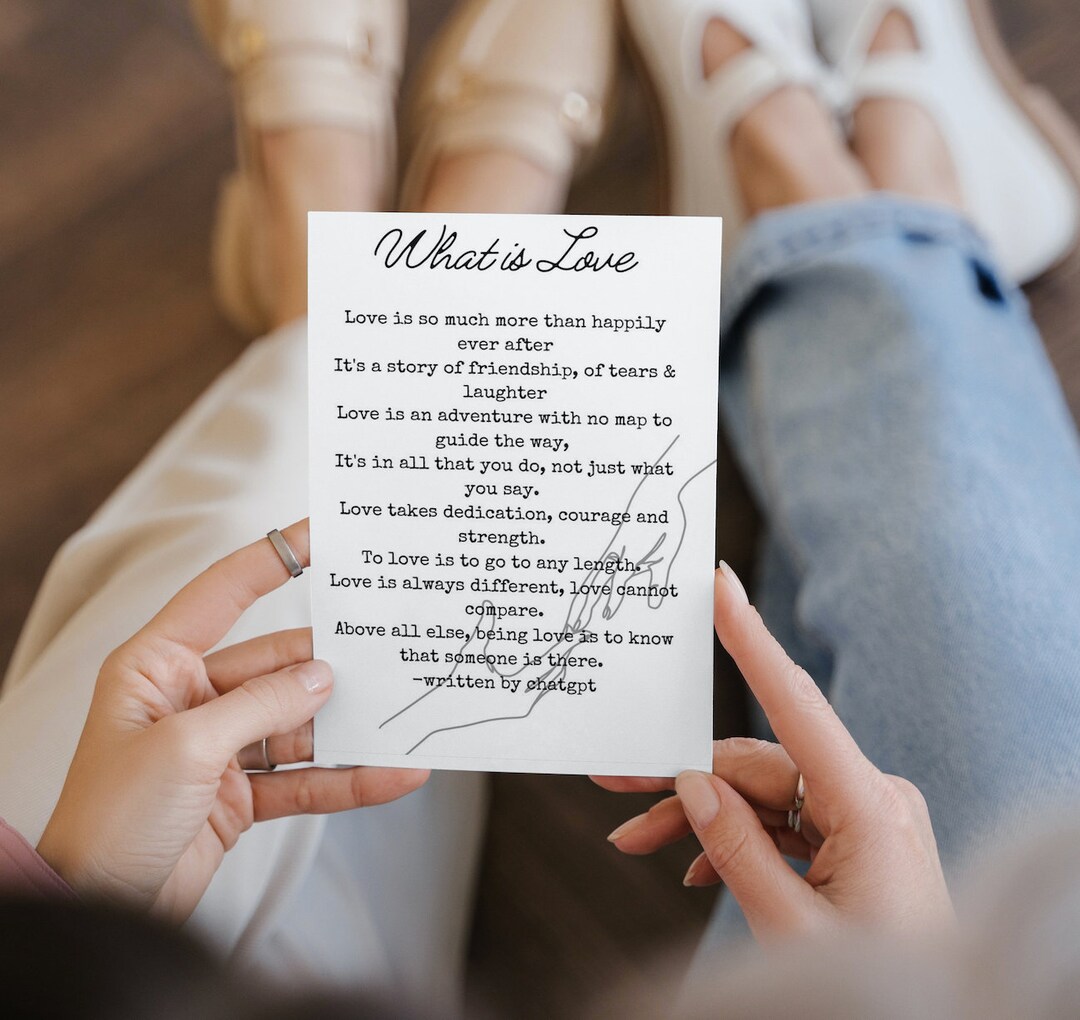 What is Love
Love is so much more than happily
ever after
It's a story of friendship, of tears &
laughter
Love is an adventure with no map to
guide the way,
It's in all that you do, not just what
you say.
Love takes dedication, courage and
strength.
To love is to go to any length.
Love is always different, love cannot
compare.
Above all else, being love is to know
that someone is there.
-written by chatgpt